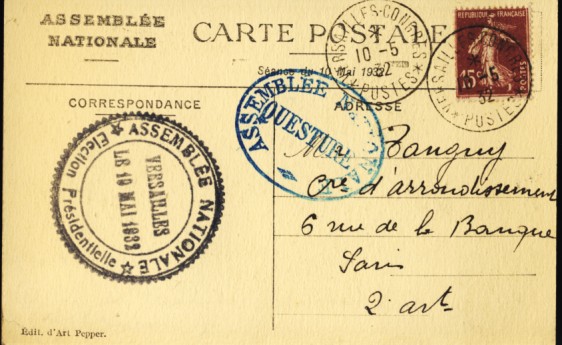 ASSEMBLÉE
NATIONALE
CARTE POSTALE
Séance du 10 Mai 1932
CORRESPONDANCE
ADRESSE
VERSAILLES-CONGRÈS
10-5
32
POSTES
RÉPUBLIQUE FRANÇAISE
15c
POSTES
VERSAILLES-CONGRÈS
10-5
32
POSTES
ASSEMBLÉE NATIONALE
QUESTURE
ASSEMBLÉE NATIONALE
VERSAILLES
LE 10 MAI 1932
Election Présidentielle
Tanguy
d'arrondissement
6 rue de la Banque
Paris
2e art
Édit. d'Art Pepper.